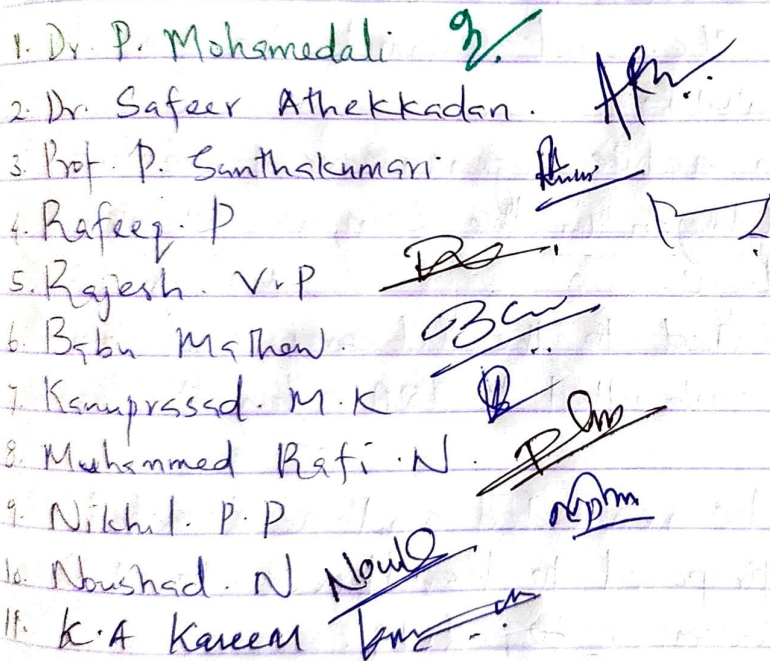 1. Dr. P. Mohamedali
2. Dr. Safeer Athekkadan.
3. Prof. P. Santhakumari
4. Rafeeq. P
5. Rajesh. V.P
6. Babu Mathew.
7. Kanuprasad. M.K
8. Muhammed Rafi. N.
9. Nikhil. P.P
10. Noushad. N
11. K.A Kareem